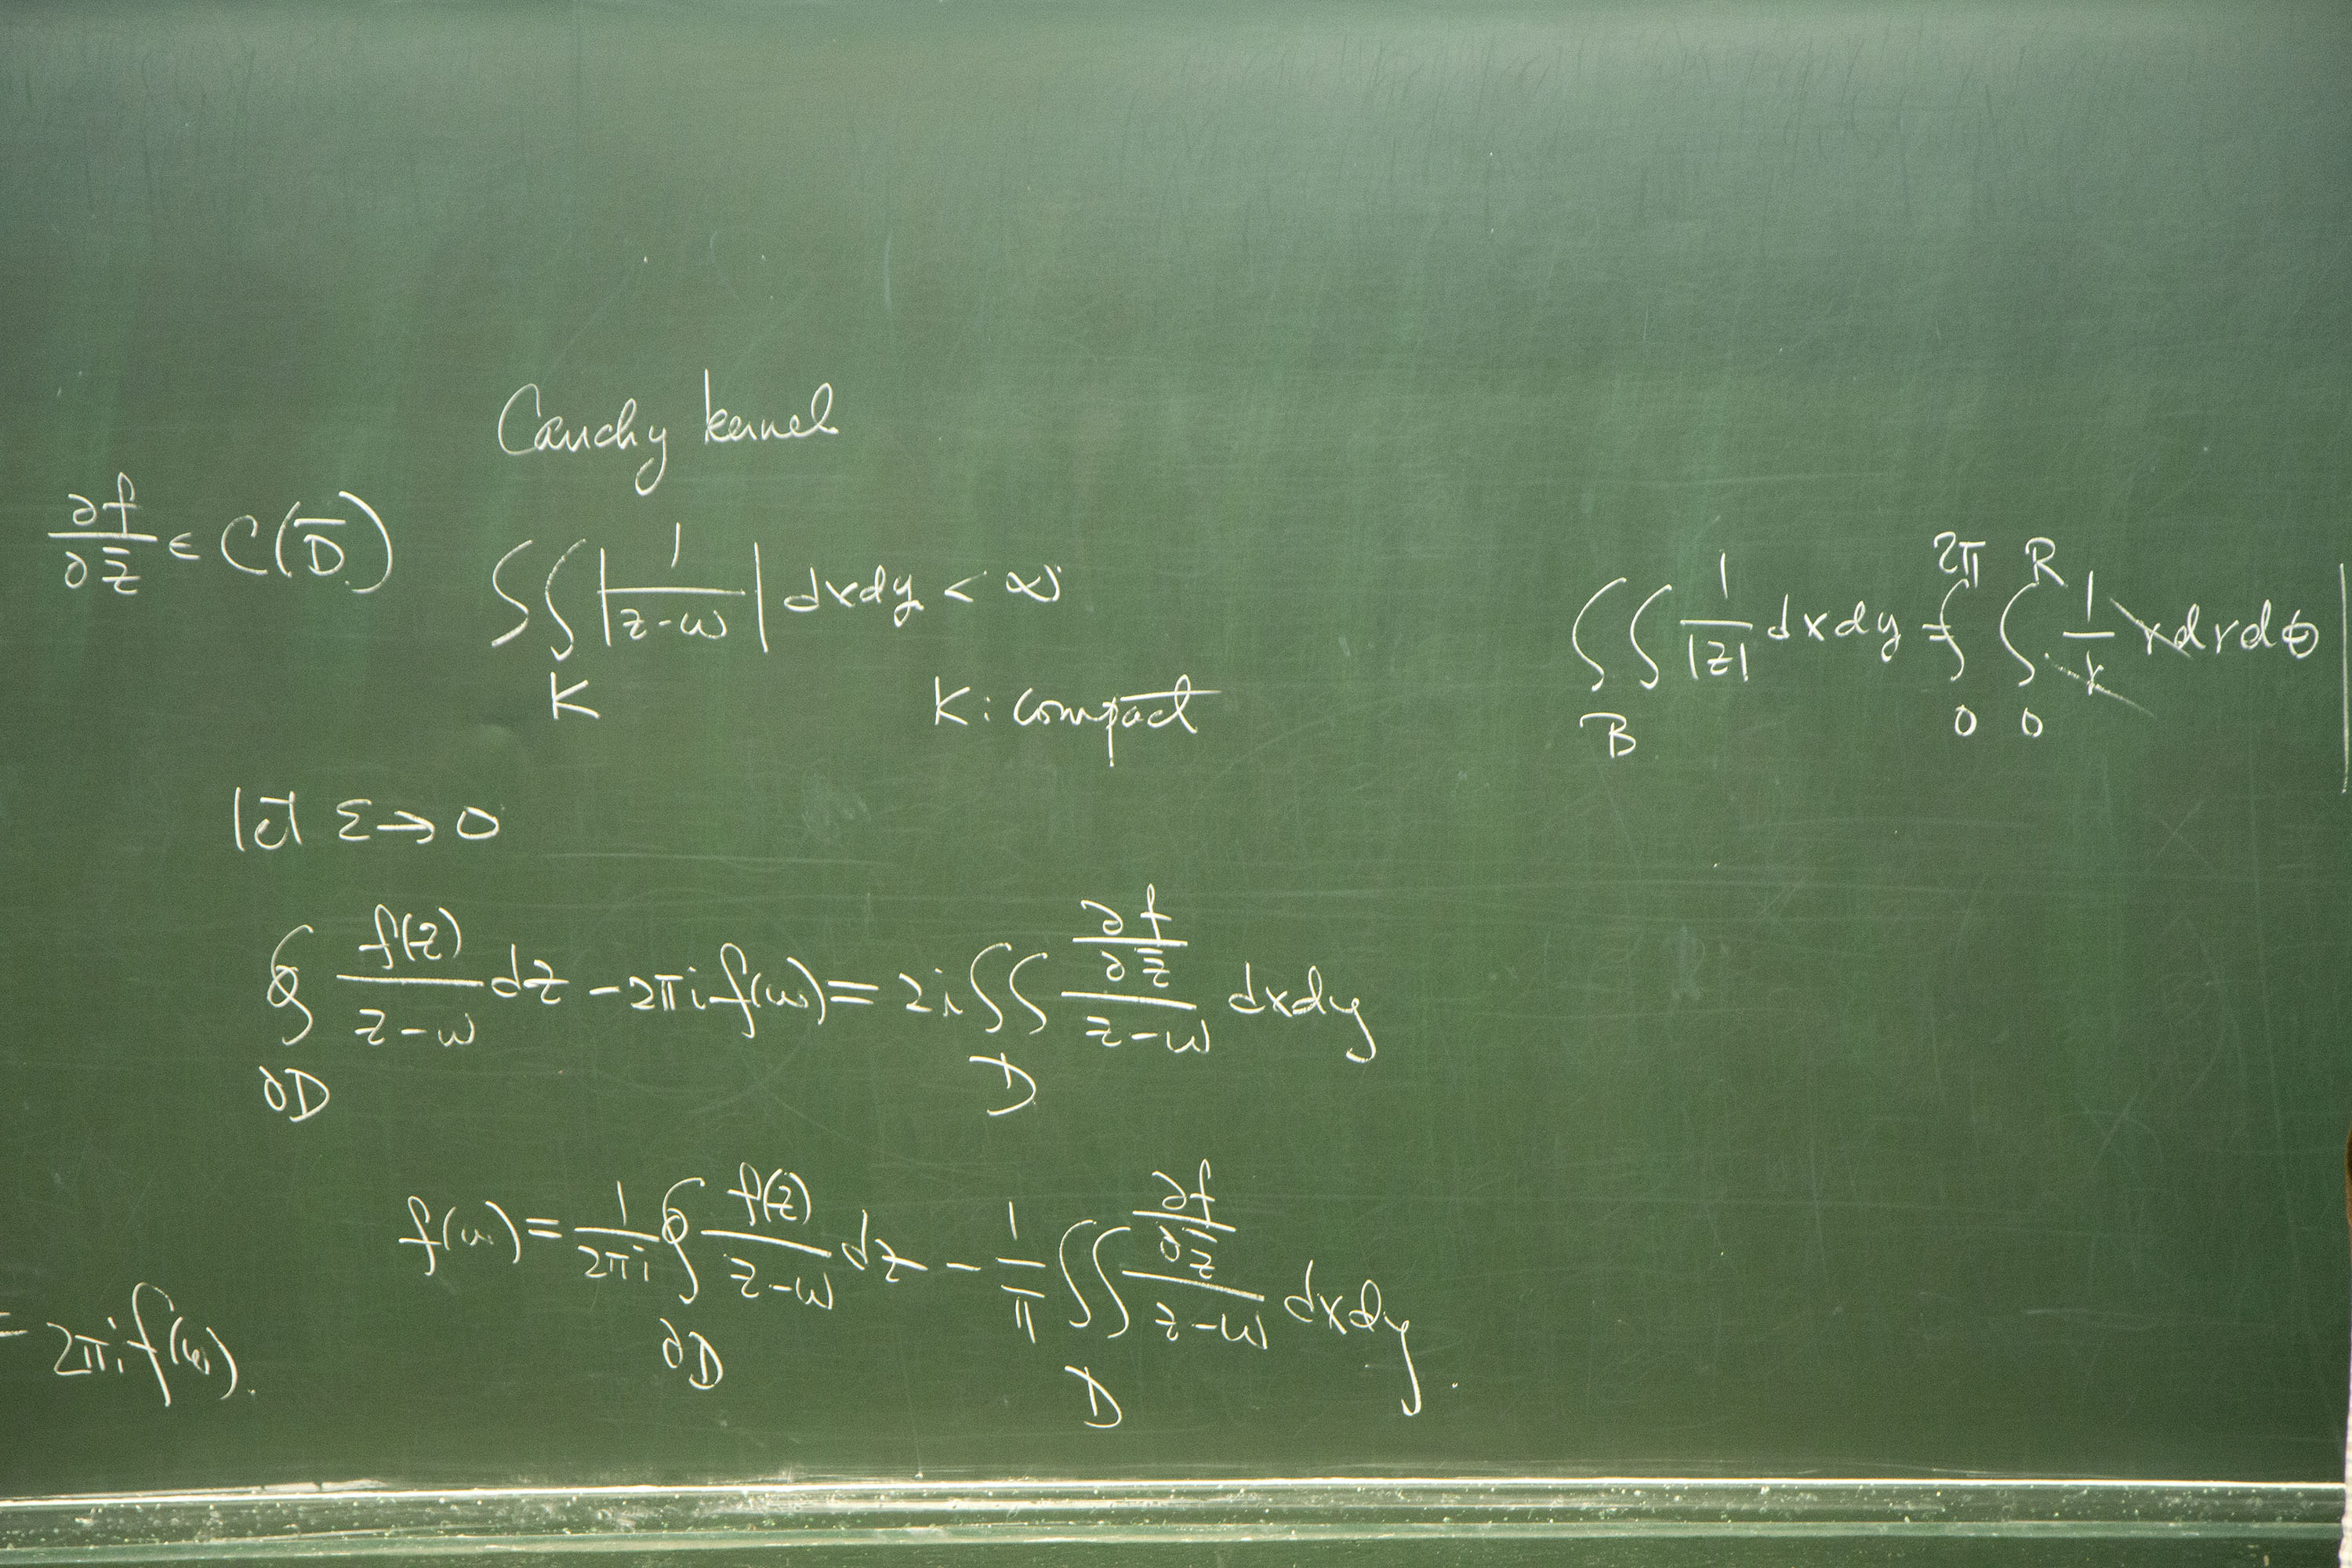 Cauchy kernel
∂f/∂z̄ ∈ C(D̄)
∬_K |1/(z-w)| dxdy < ∞
K: compact
∬_B 1/|z| dxdy = ∫_0^{2π} ∫_0^R 1/r r dr dθ
let ε → 0
∮_{∂D} f(z)/(z-w) dz - 2πi f(w) = 2i ∬_D (∂f/∂z̄)/(z-w) dxdy
f(w) = 1/(2πi) ∮_{∂D} f(z)/(z-w) dz - 1/π ∬_D (∂f/∂z̄)/(z-w) dxdy.
= 2πi f(w).